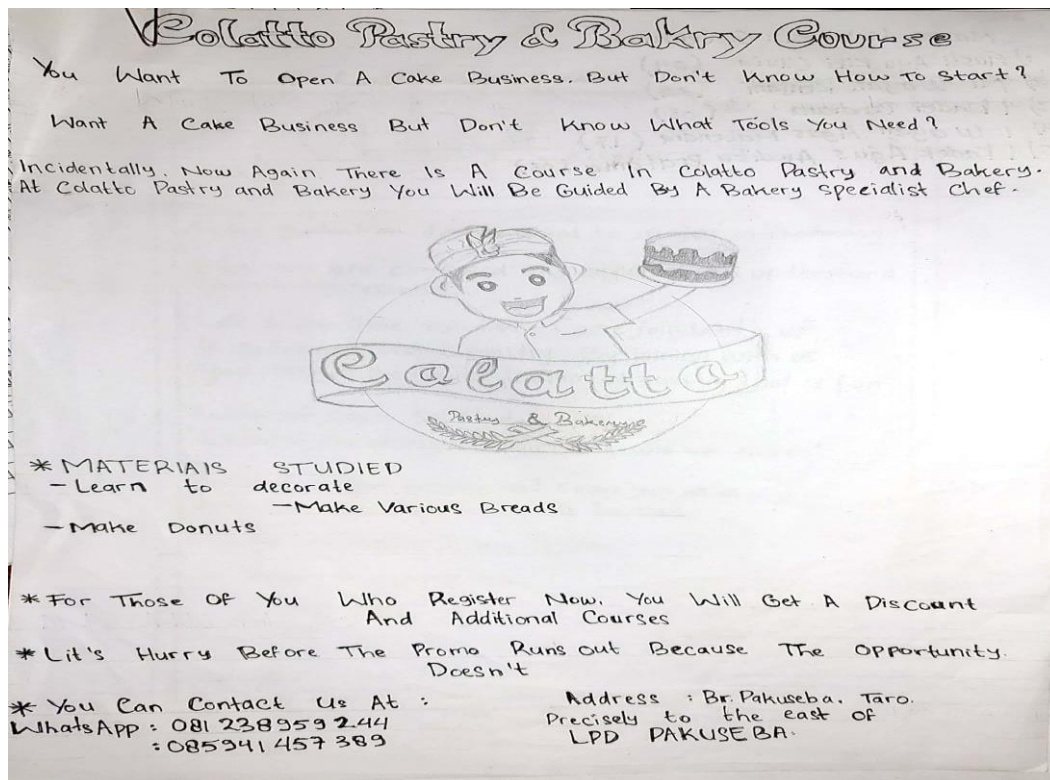 Colatto Pastry & Bakry Course
You Want To Open A Cake Business. But Don't Know How To Start?
Want A Cake Business But Don't Know What Tools You Need?
Incidentally. Now Again There Is A Course In Colatto Pastry and Bakery.
At Colatto Pastry and Bakery You Will Be Guided By A Bakery specialist Chef.
Colatto
Pastry & Bakery
* MATERIALS STUDIED
- Learn to decorate
- Make Various Breads
- Make Donuts
* For Those Of You Who Register Now. You Will Get A Discount
And Additional Courses
* Lit's Hurry Before The Promo Runs out Because The Opportunity.
Doesn't
* You Can Contact Us At :
WhatsApp : 081 238959 2.44
: 085941 457 389
Address : Br. Pakuseba. Taro.
Precisely to the east of
LPD PAKUSEBA.